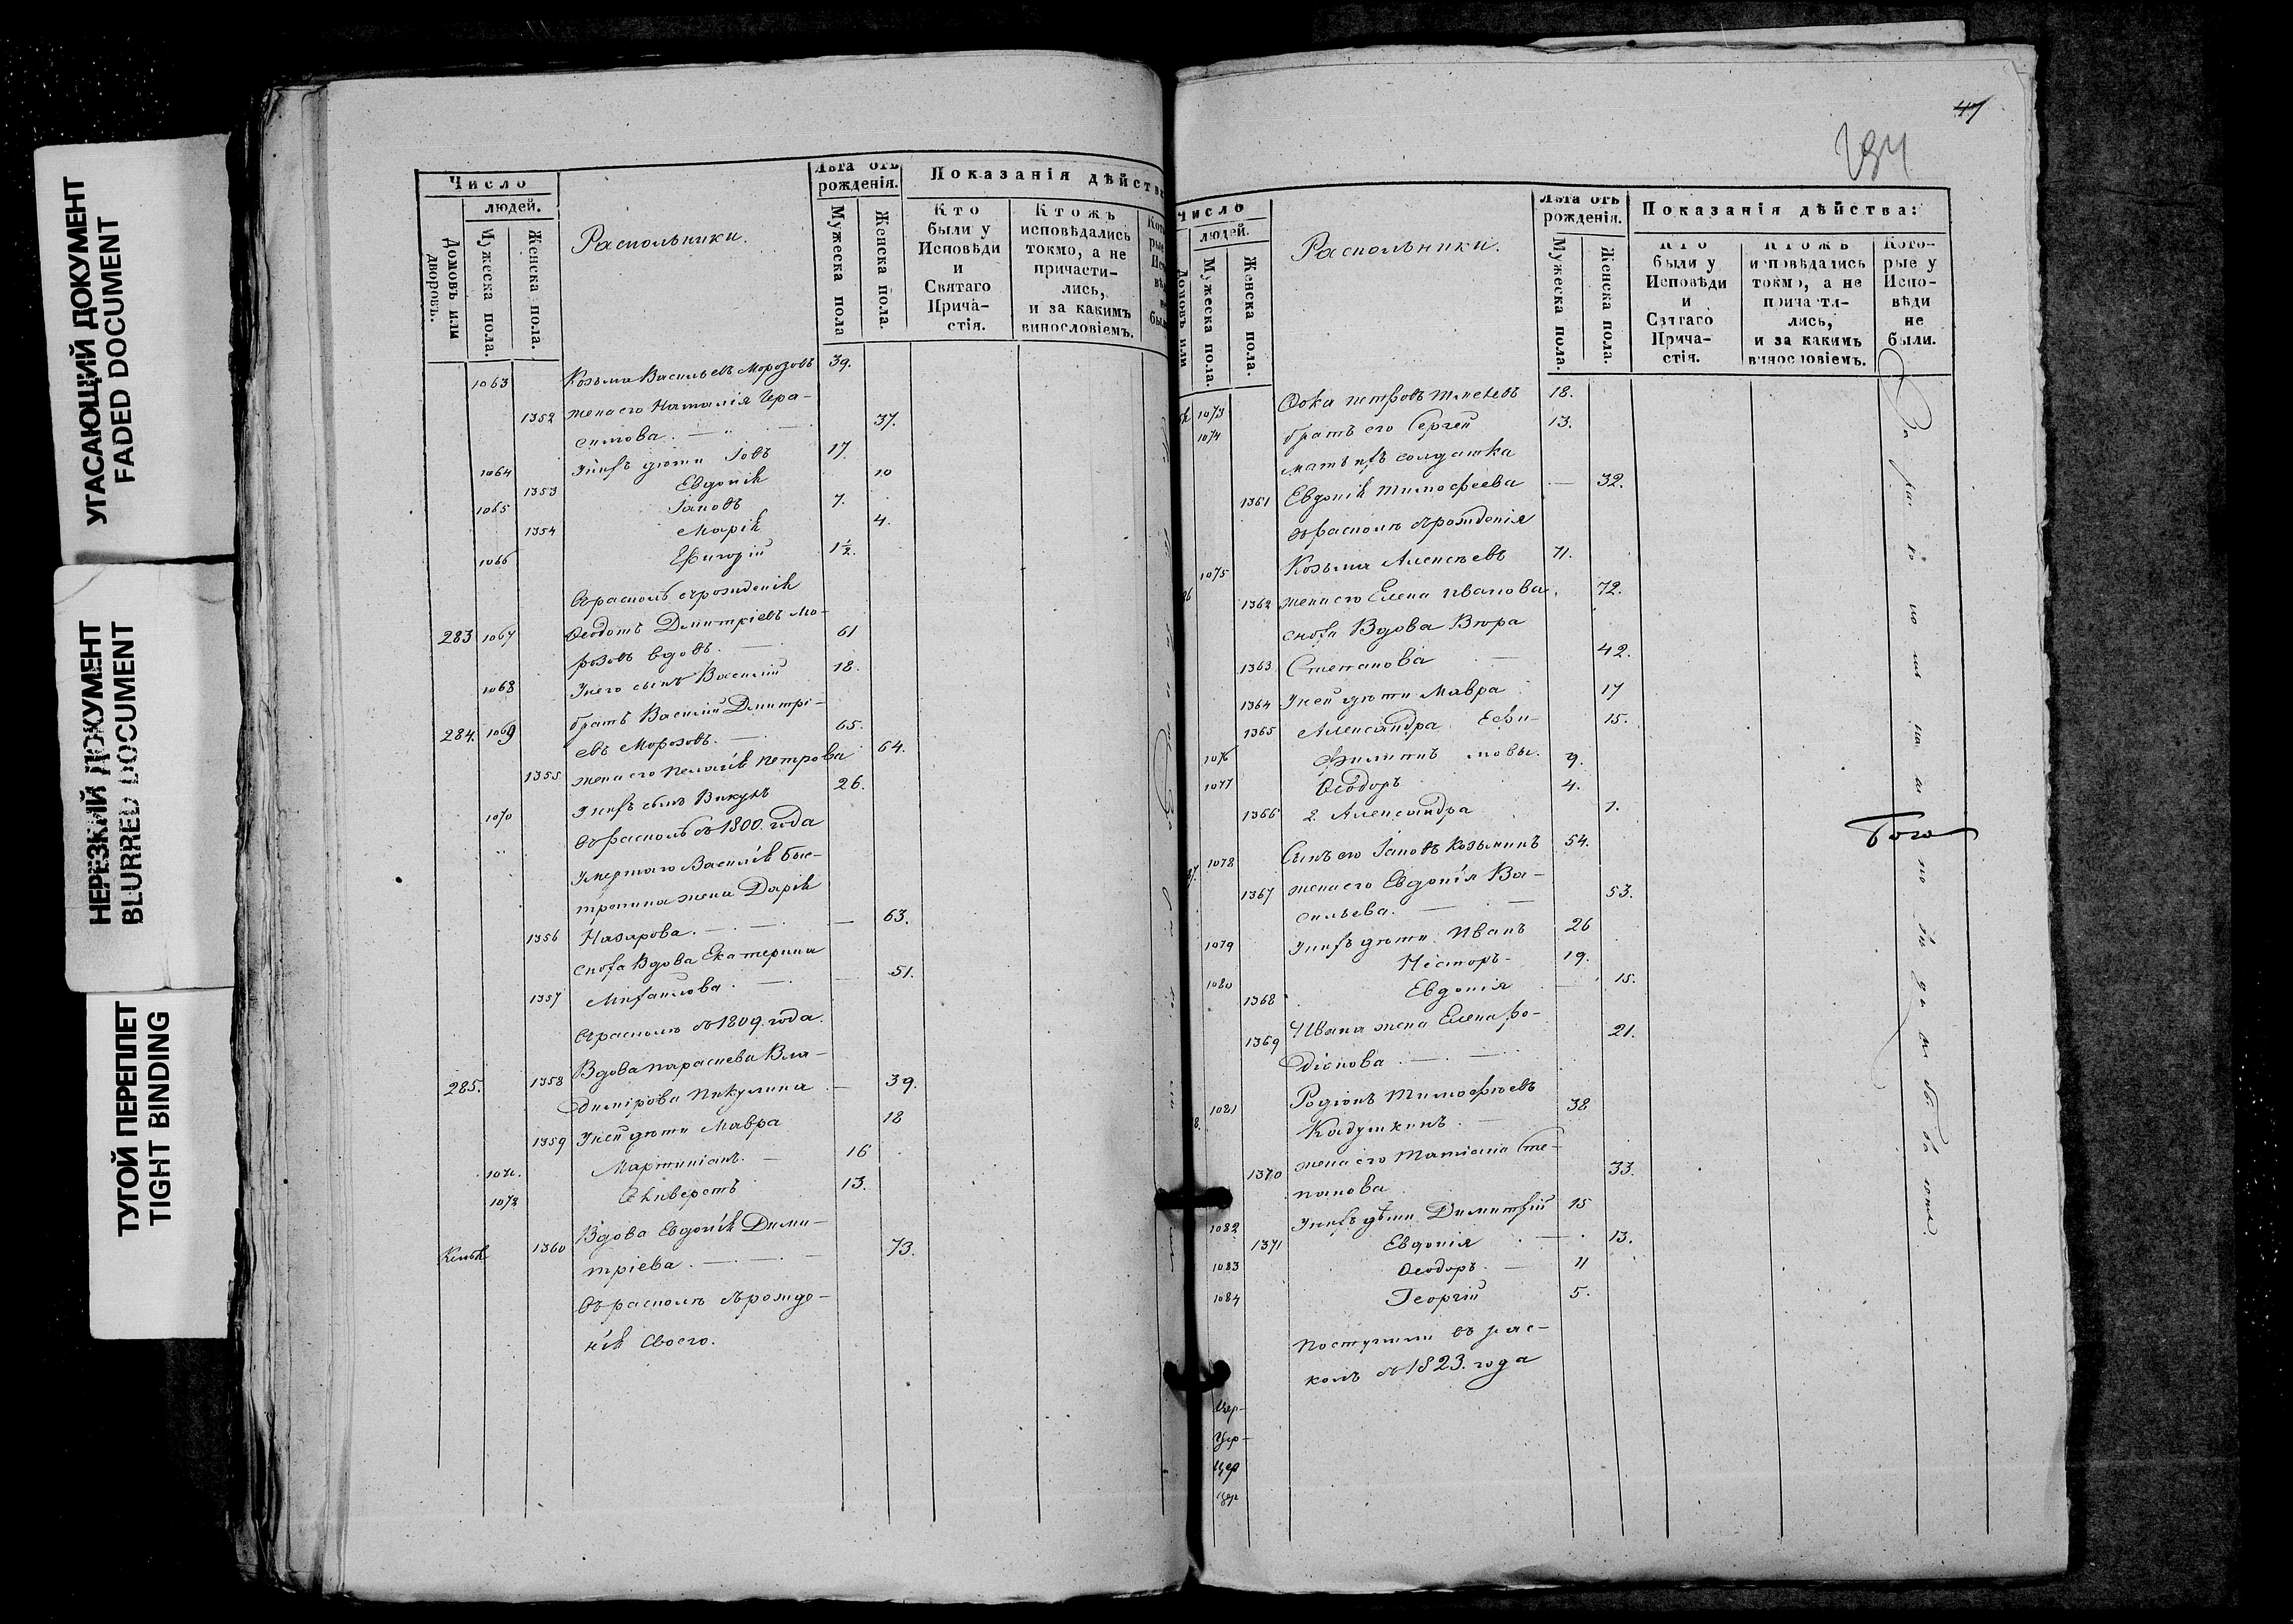 УГАСАЮЩИЙ ДОКУМЕНТ
FADED DOCUMENT
НЕРЕЗКИЙ ДОКУМЕНТ
BLURRED DOCUMENT
ТУГОЙ ПЕРЕПЛЕТ
TIGHT BINDING
Число
людей.
Домовъ или дворовъ.
Мужеска пола.
Женска пола.
Раскольники.
Лѣта отъ
рожденія.
Мужеска пола
Женска пола.
Показанія дѣйств
Кто
были у
Исповѣди
и
Святаго
Прича-
стія.
Ктожъ
исповѣдались
токмо, а не
причасти-
лись,
и за какимъ
винословіемъ.
1063 Козьма Васильевъ Морозовъ 39.
1352 жена его Наталія Гера-
симова. 37.
1064 У нихъ дѣти Іовъ 17
1353 Евдокія 10
1065 Іаковъ 7.
1354 Марія 4.
1066 Григорій 1½.
Въ расколѣ съ рожденія
283 1067 Ѳеодотъ Димитріевъ Мо-
розовъ вдовъ. 61
1068 У него сынъ Василій 18.
284. 1069 братъ Василій Димитрі-
евъ Морозовъ. 65.
1355 жена его Пелагія Петрова 64.
1070 У нихъ сынъ Викулъ 26.
Въ расколѣ съ 1800. года
Умершаго Василія
жена Дарія
1356 Назарова. 63.
сноха Вдова Екатерина
1357 Михаилова 51.
Въ расколѣ съ 1809. года.
285. 1358 Вдова Параскева Вла-
димірова Пикулина 39.
1359 У ней дѣти Мавра 18
1071. Мартиніанъ. 16
1072 Селиверстъ 13.
Келья 1360 Вдова Евдокія Дими-
тріева. 73.
Въ расколѣ съ рожде-
нія своего.
47
Число
людей.
Домовъ или
Мужеска пола.
Женска пола.
Раскольники.
Лѣта отъ
рожденія.
Мужеска пола.
Женска пола.
Показанія дѣйства:
Кто
были у
Исповѣди
и
Святаго
Прича-
стія.
Ктожъ
исповѣдались
токмо, а не
причасти-
лись,
и за какимъ
винословіемъ.
Кото-
рые у
Испо-
вѣди
не
были.
1073 Ѳока Петровъ 18.
1074 братъ его Сергей 13.
мать ихъ солдатка
1361 Евдокія Тимофеева 32.
въ расколѣ съ рожденія
1075 Козьма Алексѣевъ 71.
1362 жена его Елена Иванова. 72.
сноха Вдова Вѣра
1363 Степанова 42.
1364 У ней дѣти Мавра 17
1365 Александра Ефи- 15.
1076 Филиппъ мовы. 9.
1077 Ѳеодоръ 4.
1366 2. Александра 1.
1078 Сынъ его Іаковъ Козьминъ 54.
1367 жена его Евдокія Ва-
сильева. 53.
1079 У нихъ дѣти Иванъ 26
1080 Несторъ 19.
1368 Евдокія 15.
1369 Ивана жена Елена Ро-
діонова 21.
1081 Родіонъ Тимофѣевъ
Кадушкинъ. 38
1370 жена его Татіана Сте-
панова 33.
1082. У нихъ дѣти Димитрій 15
1371 Евдокія 13.
1083 Ѳеодоръ. 11
1084 Георгій 5.
Поступили въ рас-
колъ съ 1823. года
Цер-
Цер-
Цер
Цер